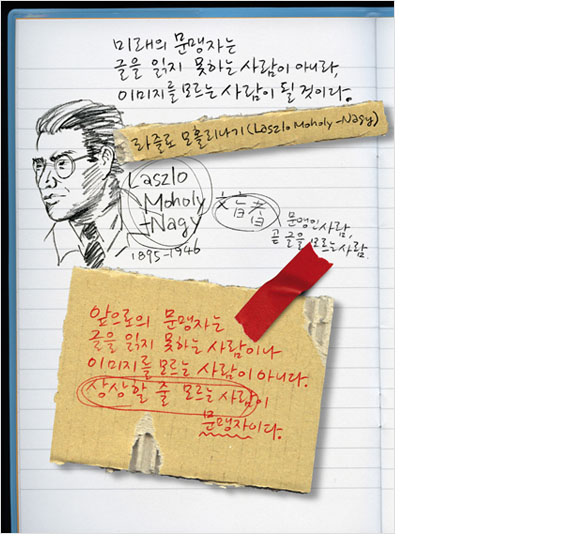 미래의 문맹자는
글을 읽지 못하는 사람이 아니라,
이미지를 모르는 사람이 될 것이다.
라즐로 모홀리나기 (Laszlo Moholy-Nagy)
Laszlo
Moholy
-Nagy
1895-1946
文盲者
문맹인 사람,
곧 글을 모르는 사람.
앞으로의 문맹자는
글을 읽지 못하는 사람이나
이미지를 모르는 사람이 아니다.
상상할 줄 모르는 사람이
문맹자이다.